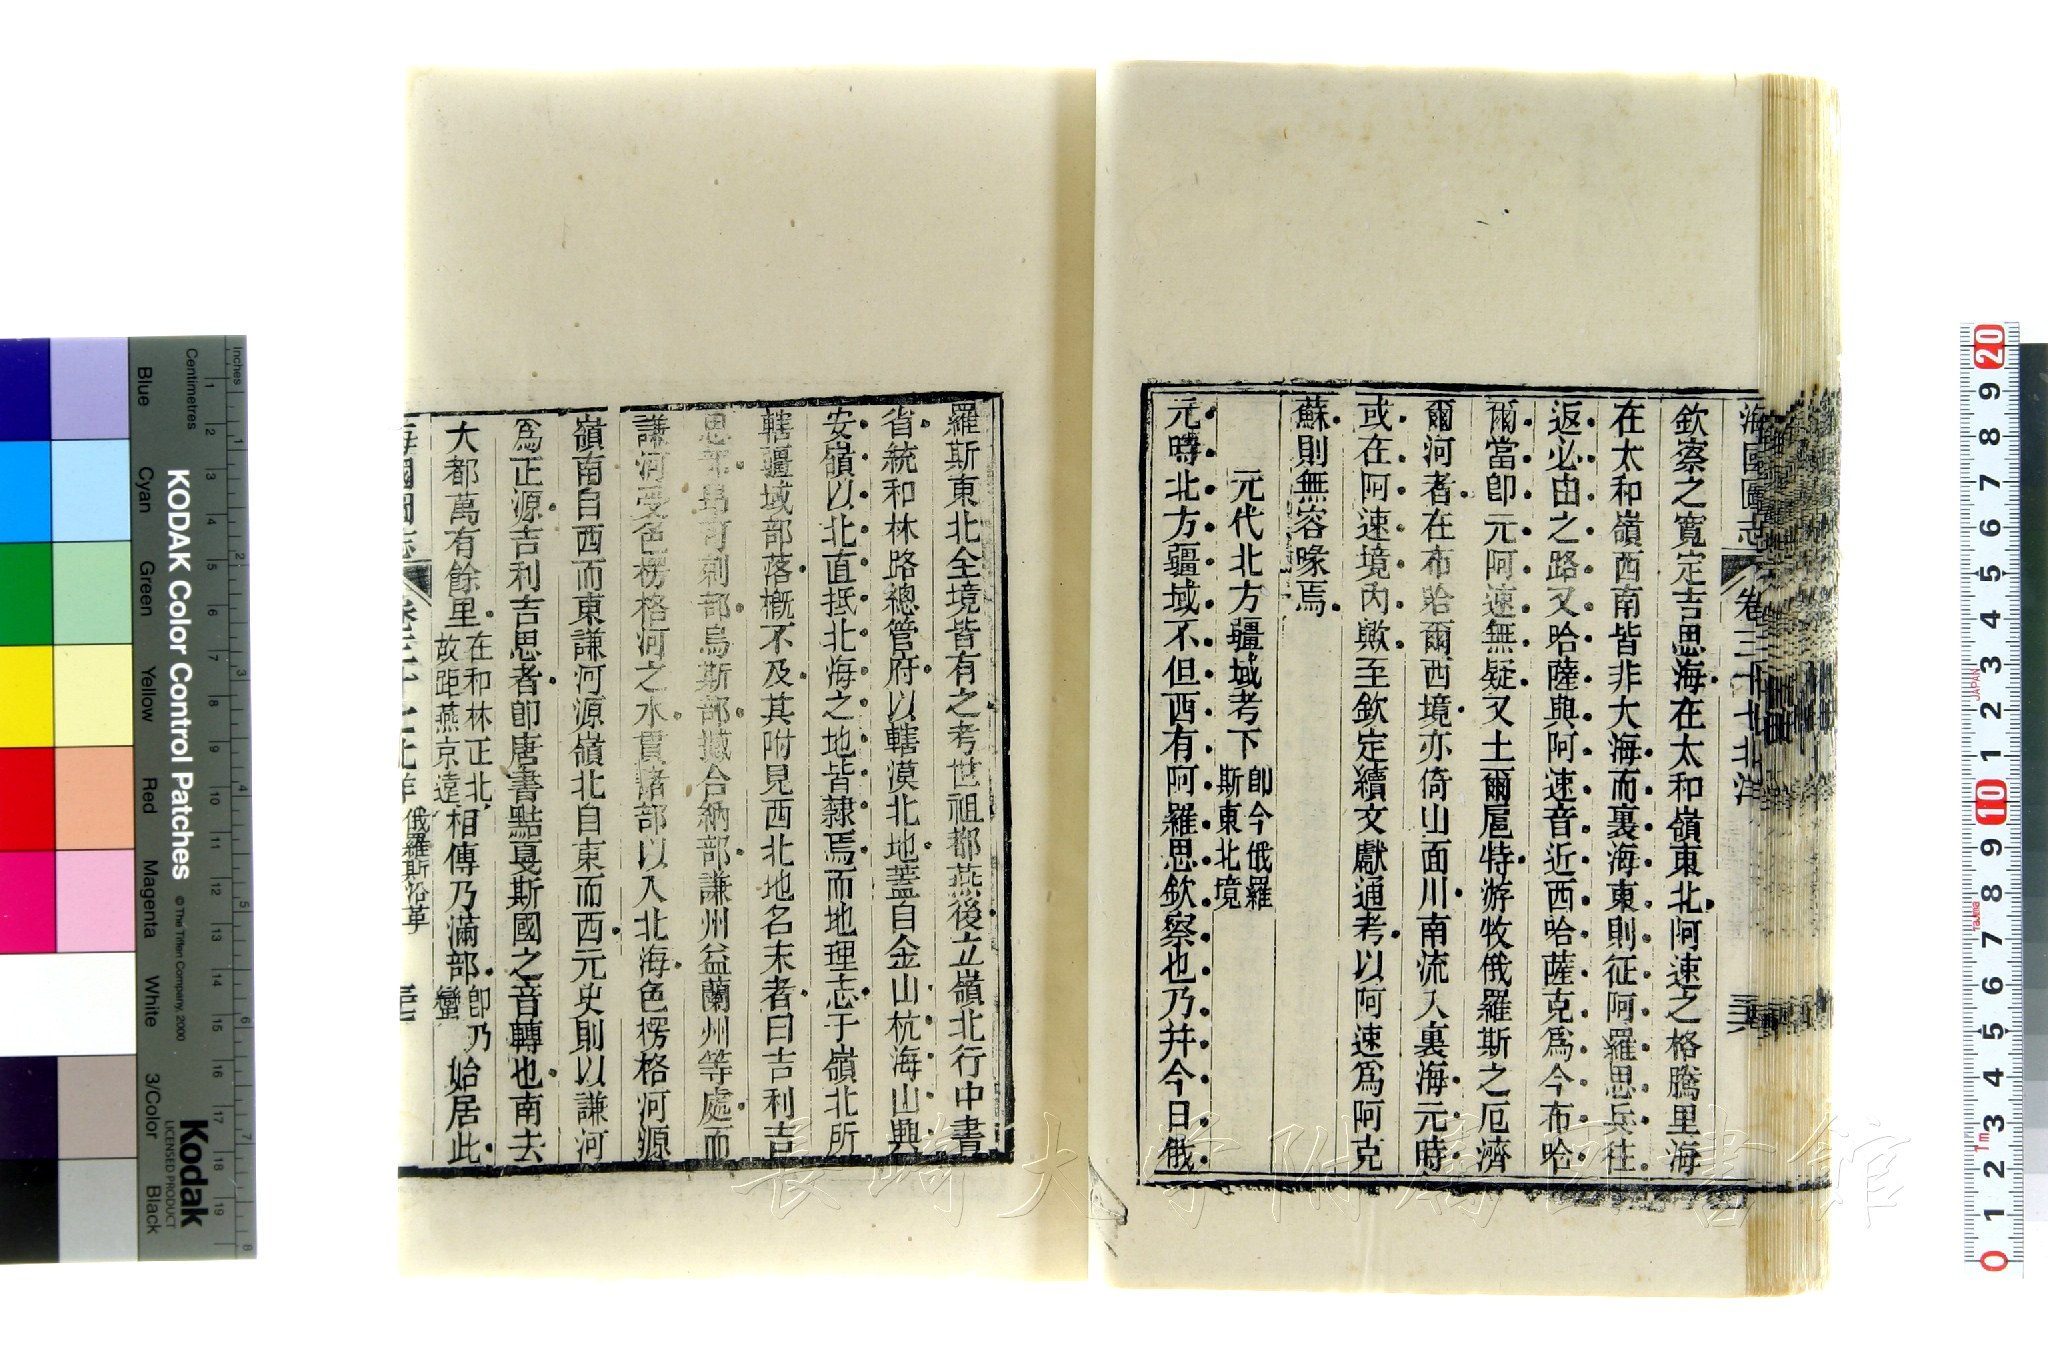 海國圖志 卷三十七 北洋
欽察之寬定吉思海在太和嶺東北阿速之格騰里海
在太和嶺西南皆非大海而裏海東則征阿羅思兵往
返必由之路又哈薩與阿速音近西哈薩克為今布哈
爾當卽元阿速無疑又土爾扈特游牧俄羅斯之厄濟
爾河者在布哈爾西境亦倚山面川南流入裏海元時
或在阿速境內歟至欽定續文獻通考以阿速為阿克
蘇則無容喙焉
元代北方疆域考下 卽今俄羅
斯東北境
元時北方疆域不但西有阿羅思欽察也乃并今日俄
羅斯東北全境皆有之考世祖都燕後立嶺北行中書
省統和林路總管府以轄漠北地蓋自金山杭海山興
安嶺以北直抵北海之地皆隸焉而地理志于嶺北所
轄疆域部落槪不及其附見西北地名末者曰吉利吉
思部曰撼合納部烏斯部撼合納部謙州益蘭州等處而
謙河受色楞格河之水貫諸部以入北海色楞格河源
嶺南自西而東謙河源嶺北自東而西元史則以謙河
為正源吉利吉思者卽唐書點戛斯國之音轉也南去
大都萬有餘里 在和林正北
故距燕京遠 相傳乃滿部 卽乃
蠻 始居此
海國圖志 卷三十七 北洋 俄羅斯沿革